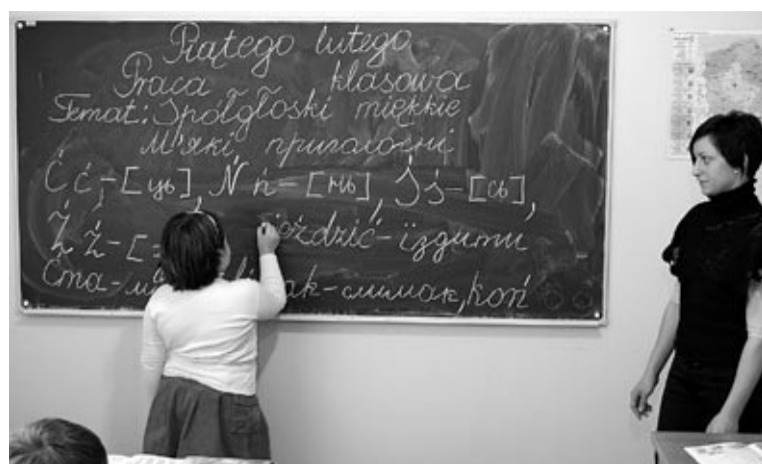 Piątego lutego
Praca klasowa
Temat: Spółgłoski miękkie
М'які приголосні
Ć ć - [ць], Ń ń - [нь], Ś ś - [сь],
Ź ź - [ jeździć - їздити
Ćma - ślimak - слимак, koń